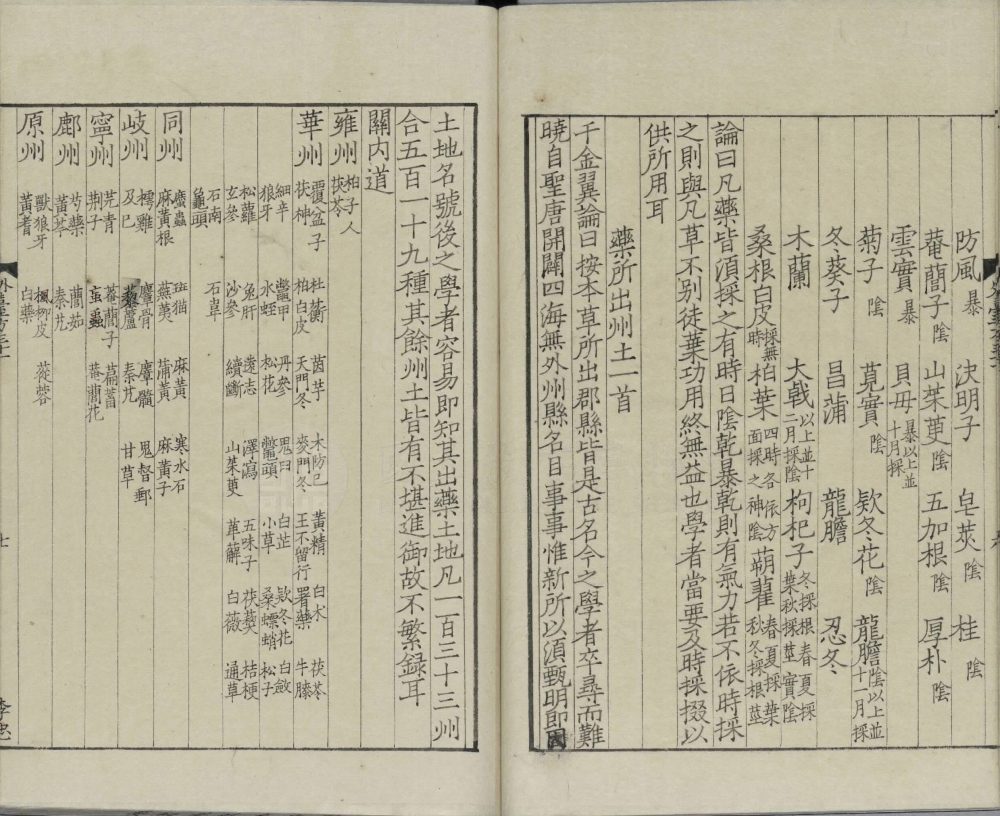 防風暴　決明子　皂莢陰　桂陰
菴䕡子陰　山茱萸陰　五加根陰　厚朴陰
雲實暴　貝母暴以上並十月採
菊子陰　莧實陰　欵冬花陰　龍膽陰以上並十一月採
冬葵子　昌蒲　龍膽　忍冬
木蘭　大戟以上並十二月採陰　枸杞子冬採根春夏採葉秋採莖實陰
桑根白皮採無時　柏葉四時各依方面採之神陰　蒴藋春夏採葉秋冬採根莖
論曰凡藥皆須採之有時日陰乾暴乾則有氣力若不依時採
之則與凡草不别徒棄功用終無益也學者當要及時採掇以
供所用耳
藥所出州土一首
千金翼論曰按本草所出郡縣皆是古名今之學者卒尋而難
曉自聖唐開闢四海無外州縣名目事事惟新所以須甄明即因
土地名號後之學者容易即知其出藥土地凡一百三十三州
合五百一十九種其餘州土皆有不堪進御故不繁録耳
關内道
雍州　柏子人　茯苓
華州　覆盆子　杜蘅　茵芋　木防己　黃精　白朮　茯苓
茯神　柏白皮　天門冬　麥門冬　王不留行　署藥　牛膝
細辛　鼈甲　丹參　鬼臼　白芷　欵冬花　白斂
狼牙　水蛭　松花　鼈頭　小草　桑螵蛸　松子
松蘿　兔肝　遠志　澤瀉　五味子　茯苓　桔梗
玄參　沙參　續斷　山茱萸　萆薢　白薇　通草
石南　石韋
龜頭
同州　䗪蟲　斑猫　麻黃　寒水石
麻黃根　蕪荑　蒲黃　麻黃子
岐州　樗雞　麞骨　麞髓　鬼督郵
及已　藜蘆　秦艽　甘草
寧州　芫青　菴䕡子　萹蓄
荆子　䖟蟲　菴䕡花
鄜州　芍藥　䕡茹
黃芩　秦艽
原州　獸狼牙　楓柳皮　蓯蓉
黃耆　白藥
外臺方三十一
七
李忠